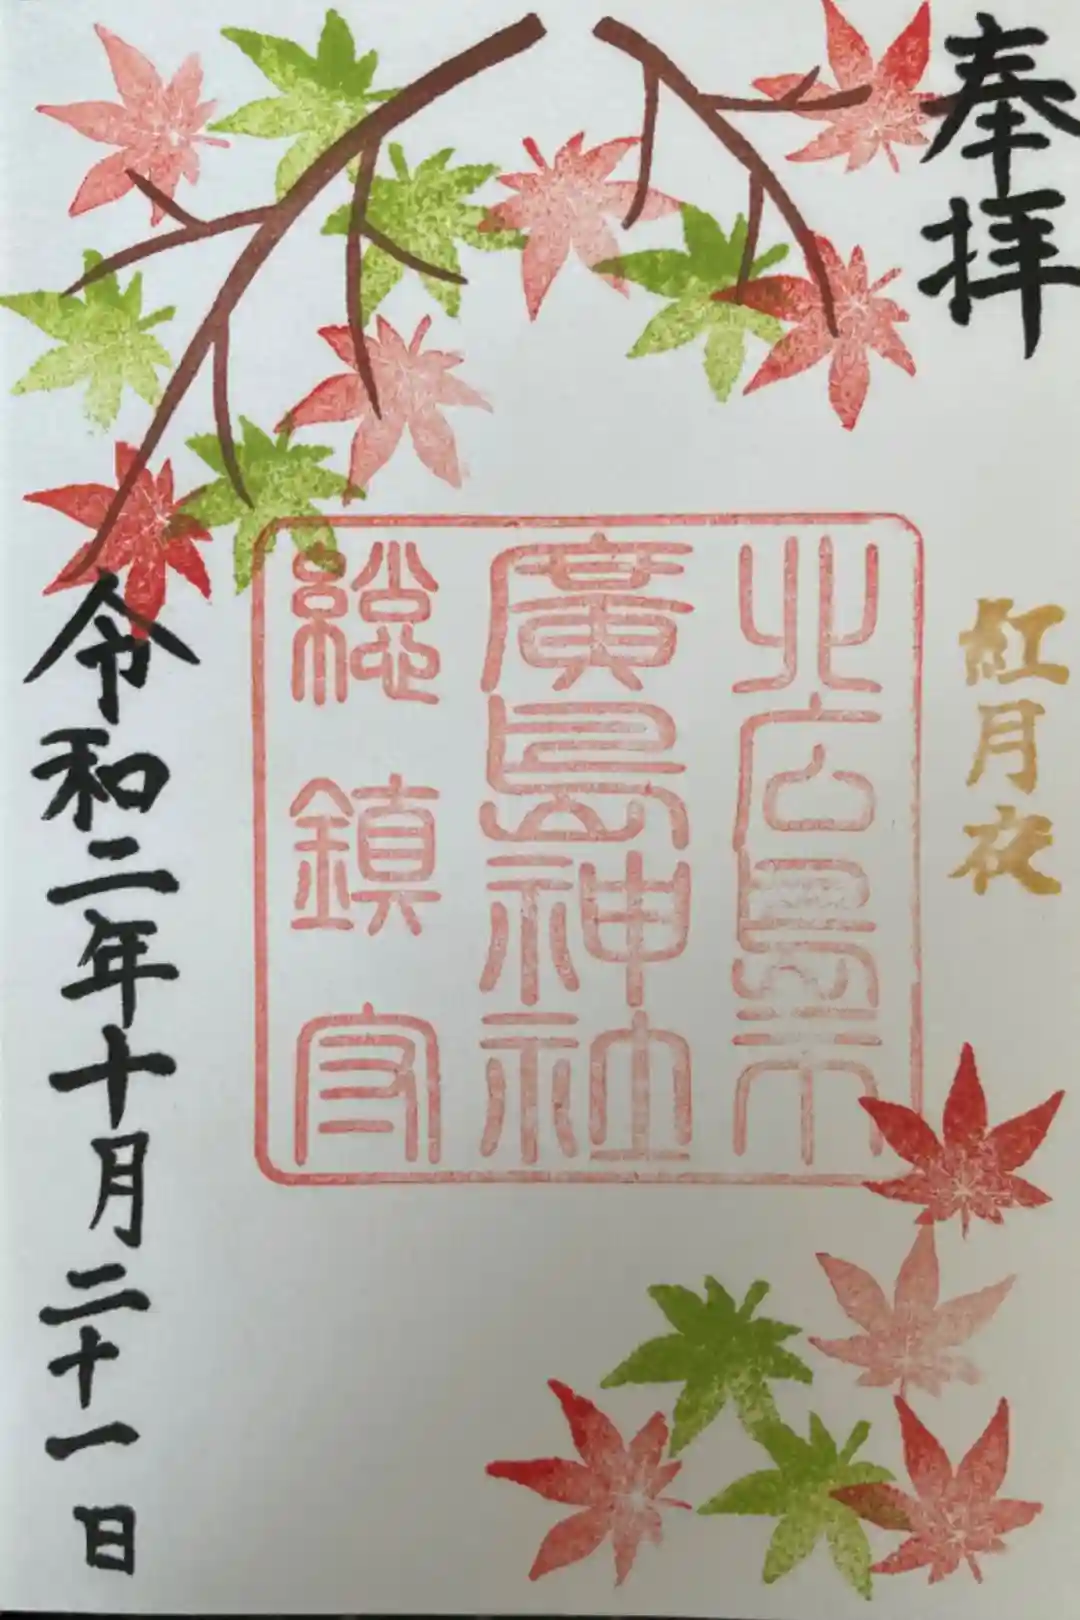 奉拝
紅月夜
北広島市
廣島神社
総鎮守
令和二年十月二十一日